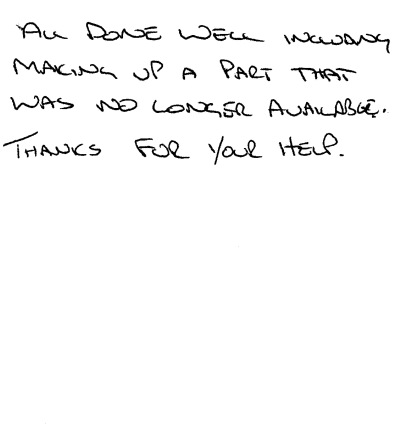 All DONE WELL INCLUDING
MAKING UP A PART THAT
WAS NO LONGER AVAILABLE.
THANKS FOR YOUR HELP.